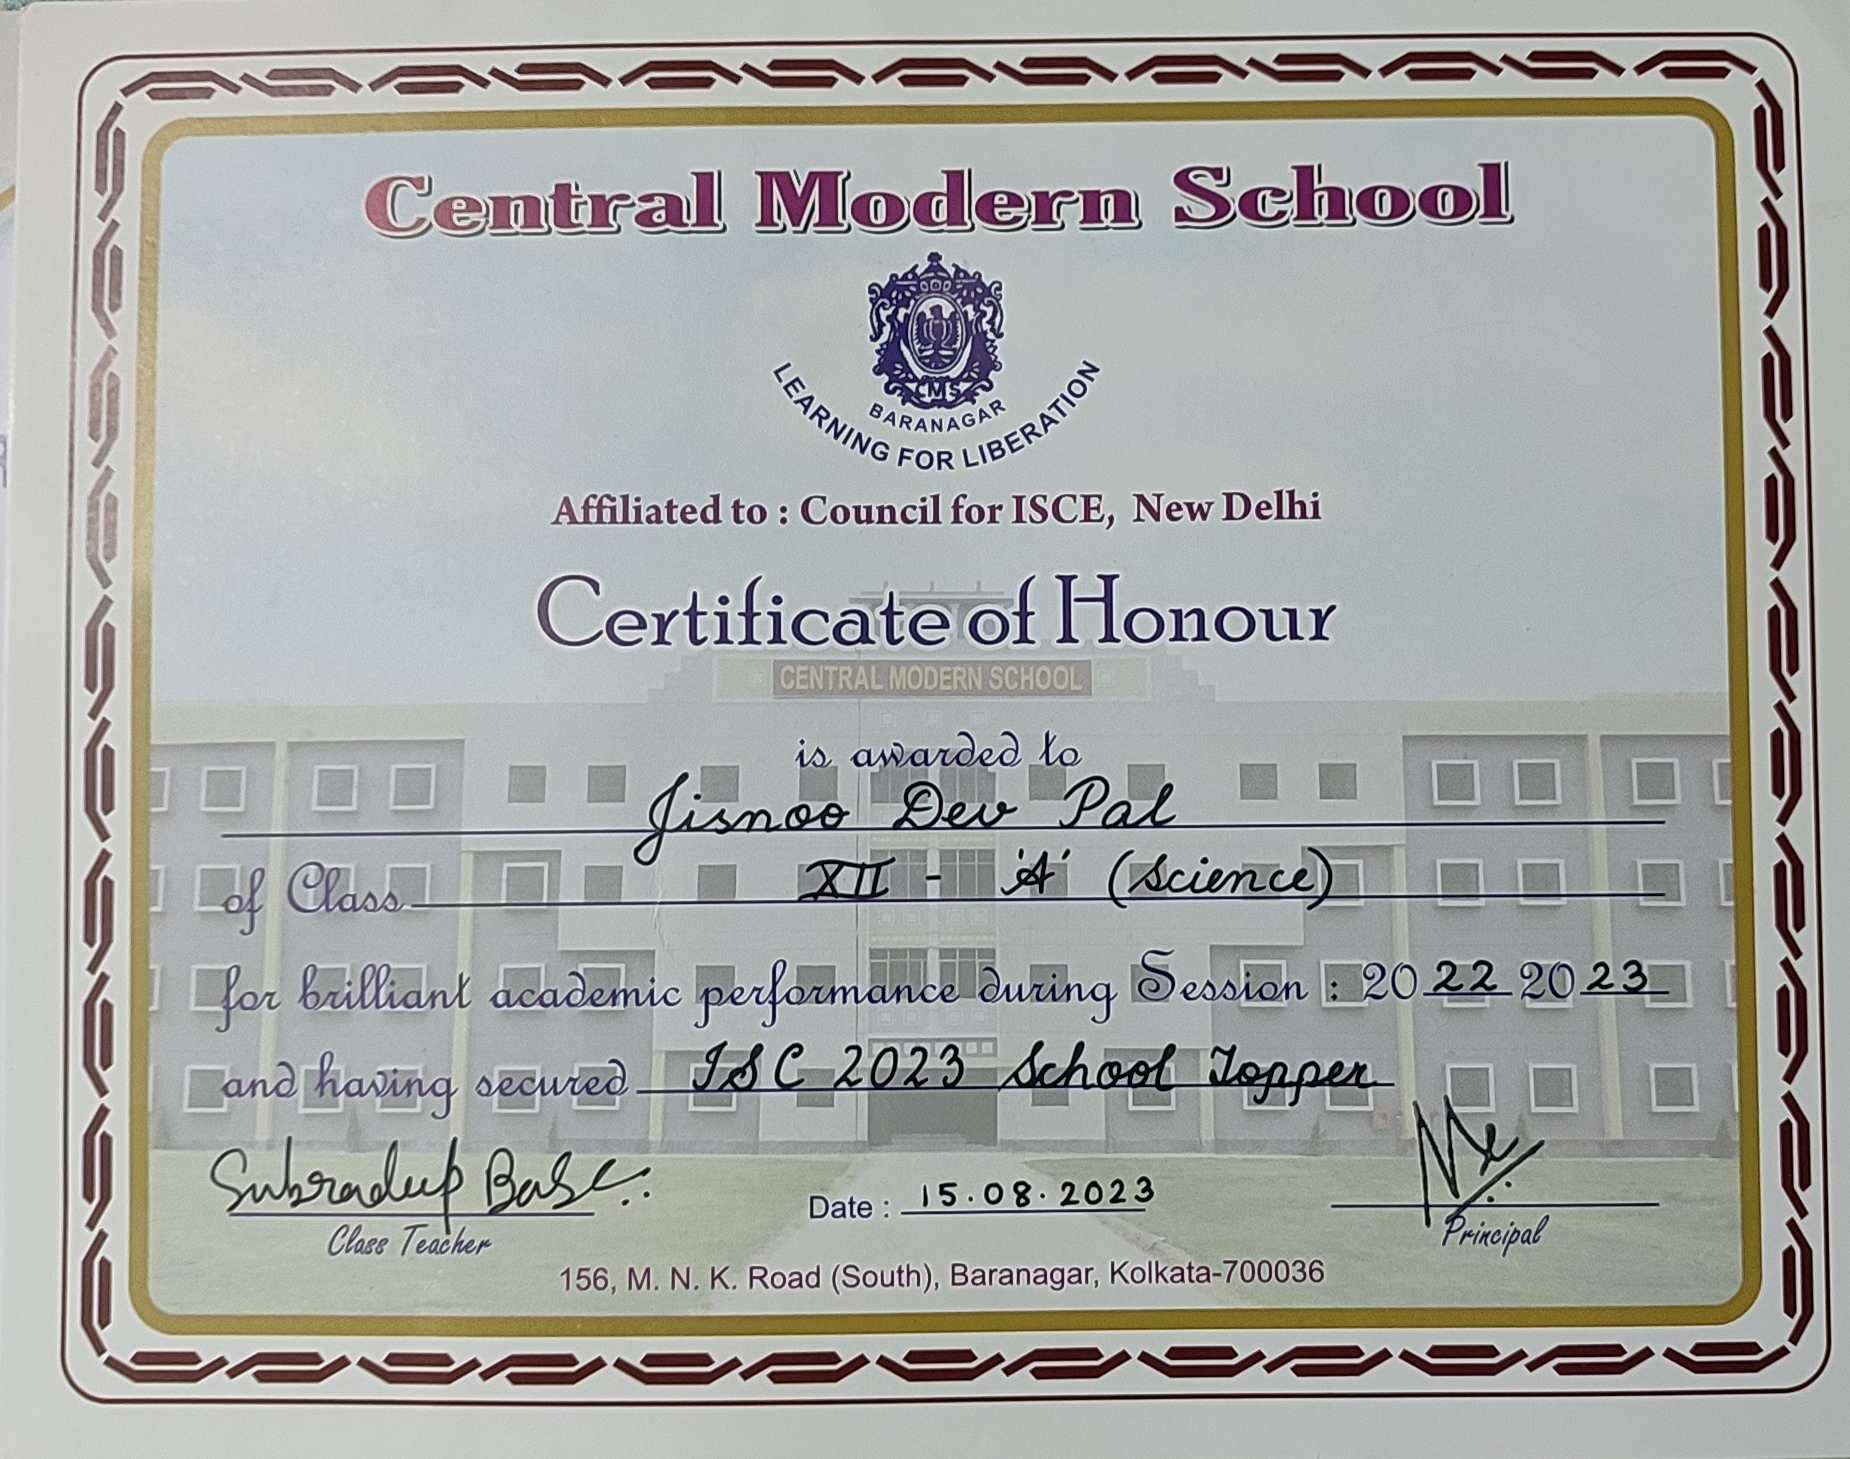 Central Modern School
CMS
BARANAGAR
LEARNING FOR LIBERATION
Affiliated to : Council for ISCE, New Delhi
Certificate of Honour
CENTRAL MODERN SCHOOL
is awarded to
Jisnoo Dev Pal
of Class XII - 'A' (Science)
for brilliant academic performance during Session : 2022 2023
and having secured ISC 2023 School Topper
Subradeep Bose
Class Teacher
Date : 15.08.2023
Principal
156, M. N. K. Road (South), Baranagar, Kolkata-700036